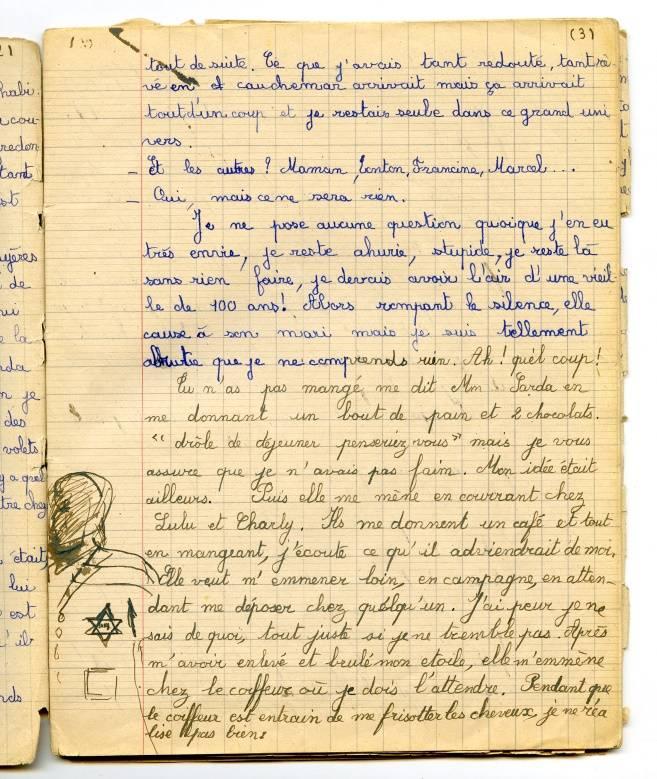 (3)
tout de suite. Ce que j'avais tant redouté, tant rê-
vé en cauchemar arrivait mais ça arrivait
tout d'un coup et je restais seule dans ce grand uni
vers.
_ Et les autres ? Maman, Tonton, Francine, Marcel...
_ Oui, mais ce ne sera rien.
Je ne pose aucune question quoique j'en eu
très envie, je reste ahurie, stupide, je reste là
sans rien faire, je devais avoir l'air d'une vieil
le de 100 ans! Alors rompant le silence, elle
cause à son mari mais je suis tellement
abrutie que je ne comprends rien. Ah! quel coup!
Tu n'as pas mangé me dit Mm Sarda en
me donnant un bout de pain et 2 chocolats.
"drôle de déjeuner penseriez vous" mais je vous
assure que je n'avais pas faim. Mon idée était
ailleurs. Puis elle me mène en courrant chez
Lulu et Charly. Ils me donnent un café et tout
en mangeant, j'écoute ce qu'il adviendrait de moi.
Elle veut m'emmener loin, en campagne, en atten-
dant me déposer chez quelqu'un. J'ai peur je ne
sais de quoi, tout juste si je ne tremble pas. Après
m'avoir enlevé et brulé mon etoile, elle m'emmène
chez le coiffeur où je dois l'attendre. Pendant que
le coiffeur est entrain de me frisotter les cheveux, je ne réa
lise pas bien: